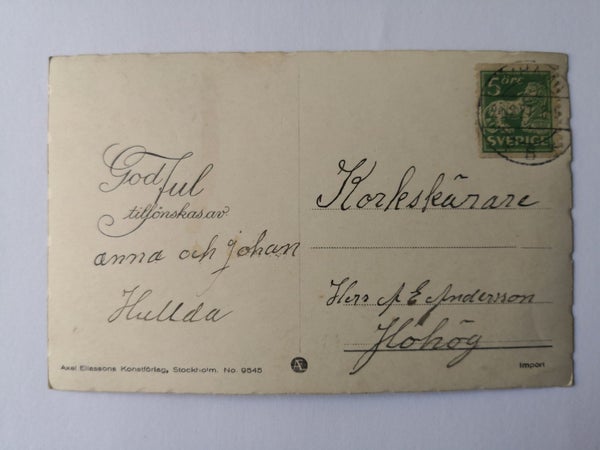 God Jul
tillönskas av
anna och Johan
Hullda
Korkskärare
Herr A E Andersson
Höhög
5 ÖRE
SVERIGE
Axel Eliassons Konstförlag, Stockholm. No. 9545
Import